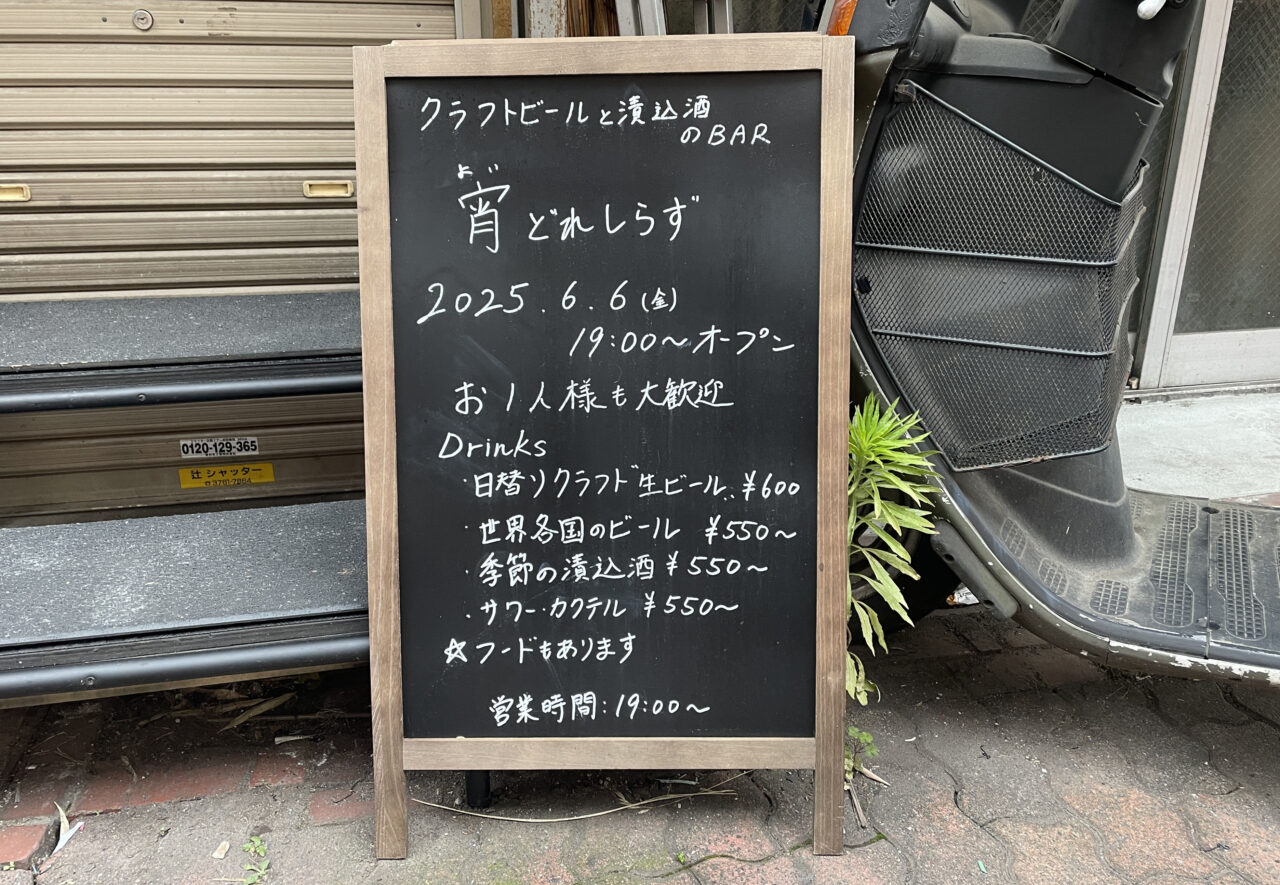 クラフトビールと漬込酒
のBAR
よい
宵どれしらず
2025.6.6(金)
19:00〜オープン
お1人様も大歓迎
Drinks
・日替りクラフト生ビール..¥600
・世界各国のビール ¥550〜
・季節の漬込酒 ¥550〜
・サワー・カクテル ¥550〜
☆フードもあります
営業時間:19:00〜
0120-129-365
辻シャッター